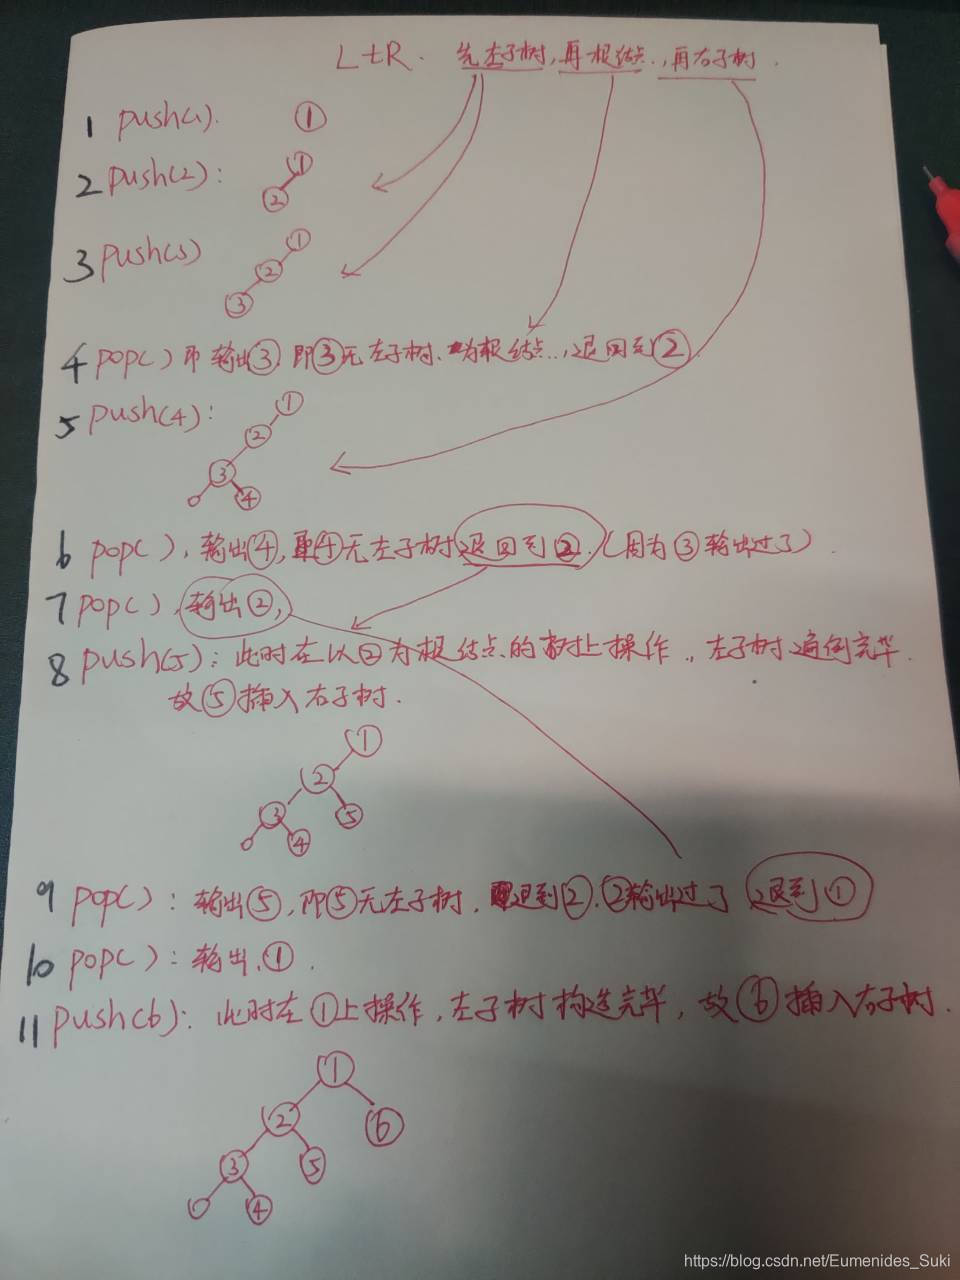 LtR. 先左子树,再根结点.,再右子树.
1 push(1). ①
2 push(2): ① ②
3 push(3) ① ② ③
4 pop() 即输出③.即③无左子树.为根结点..,退回到②
5 push(4): ① ② ③ ④
6 pop(),输出④,④无左子树退回到②.(因为③输出过了)
7 pop(),输出②,
8 push(5):此时在以②为根结点的树上操作.,左子树遍例完毕.
故⑤插入右子树.
①
②
③ ⑤
④
9 pop():输出⑤,即⑤无左子树.退到②.②输出过了 退到①
10 pop():输出.①.
11 push(6):此时在①上操作,左子树构造完毕,故⑥插入右子树.
①
② ⑥
③ ⑤
④
https://blog.csdn.net/Eumenides_Suki